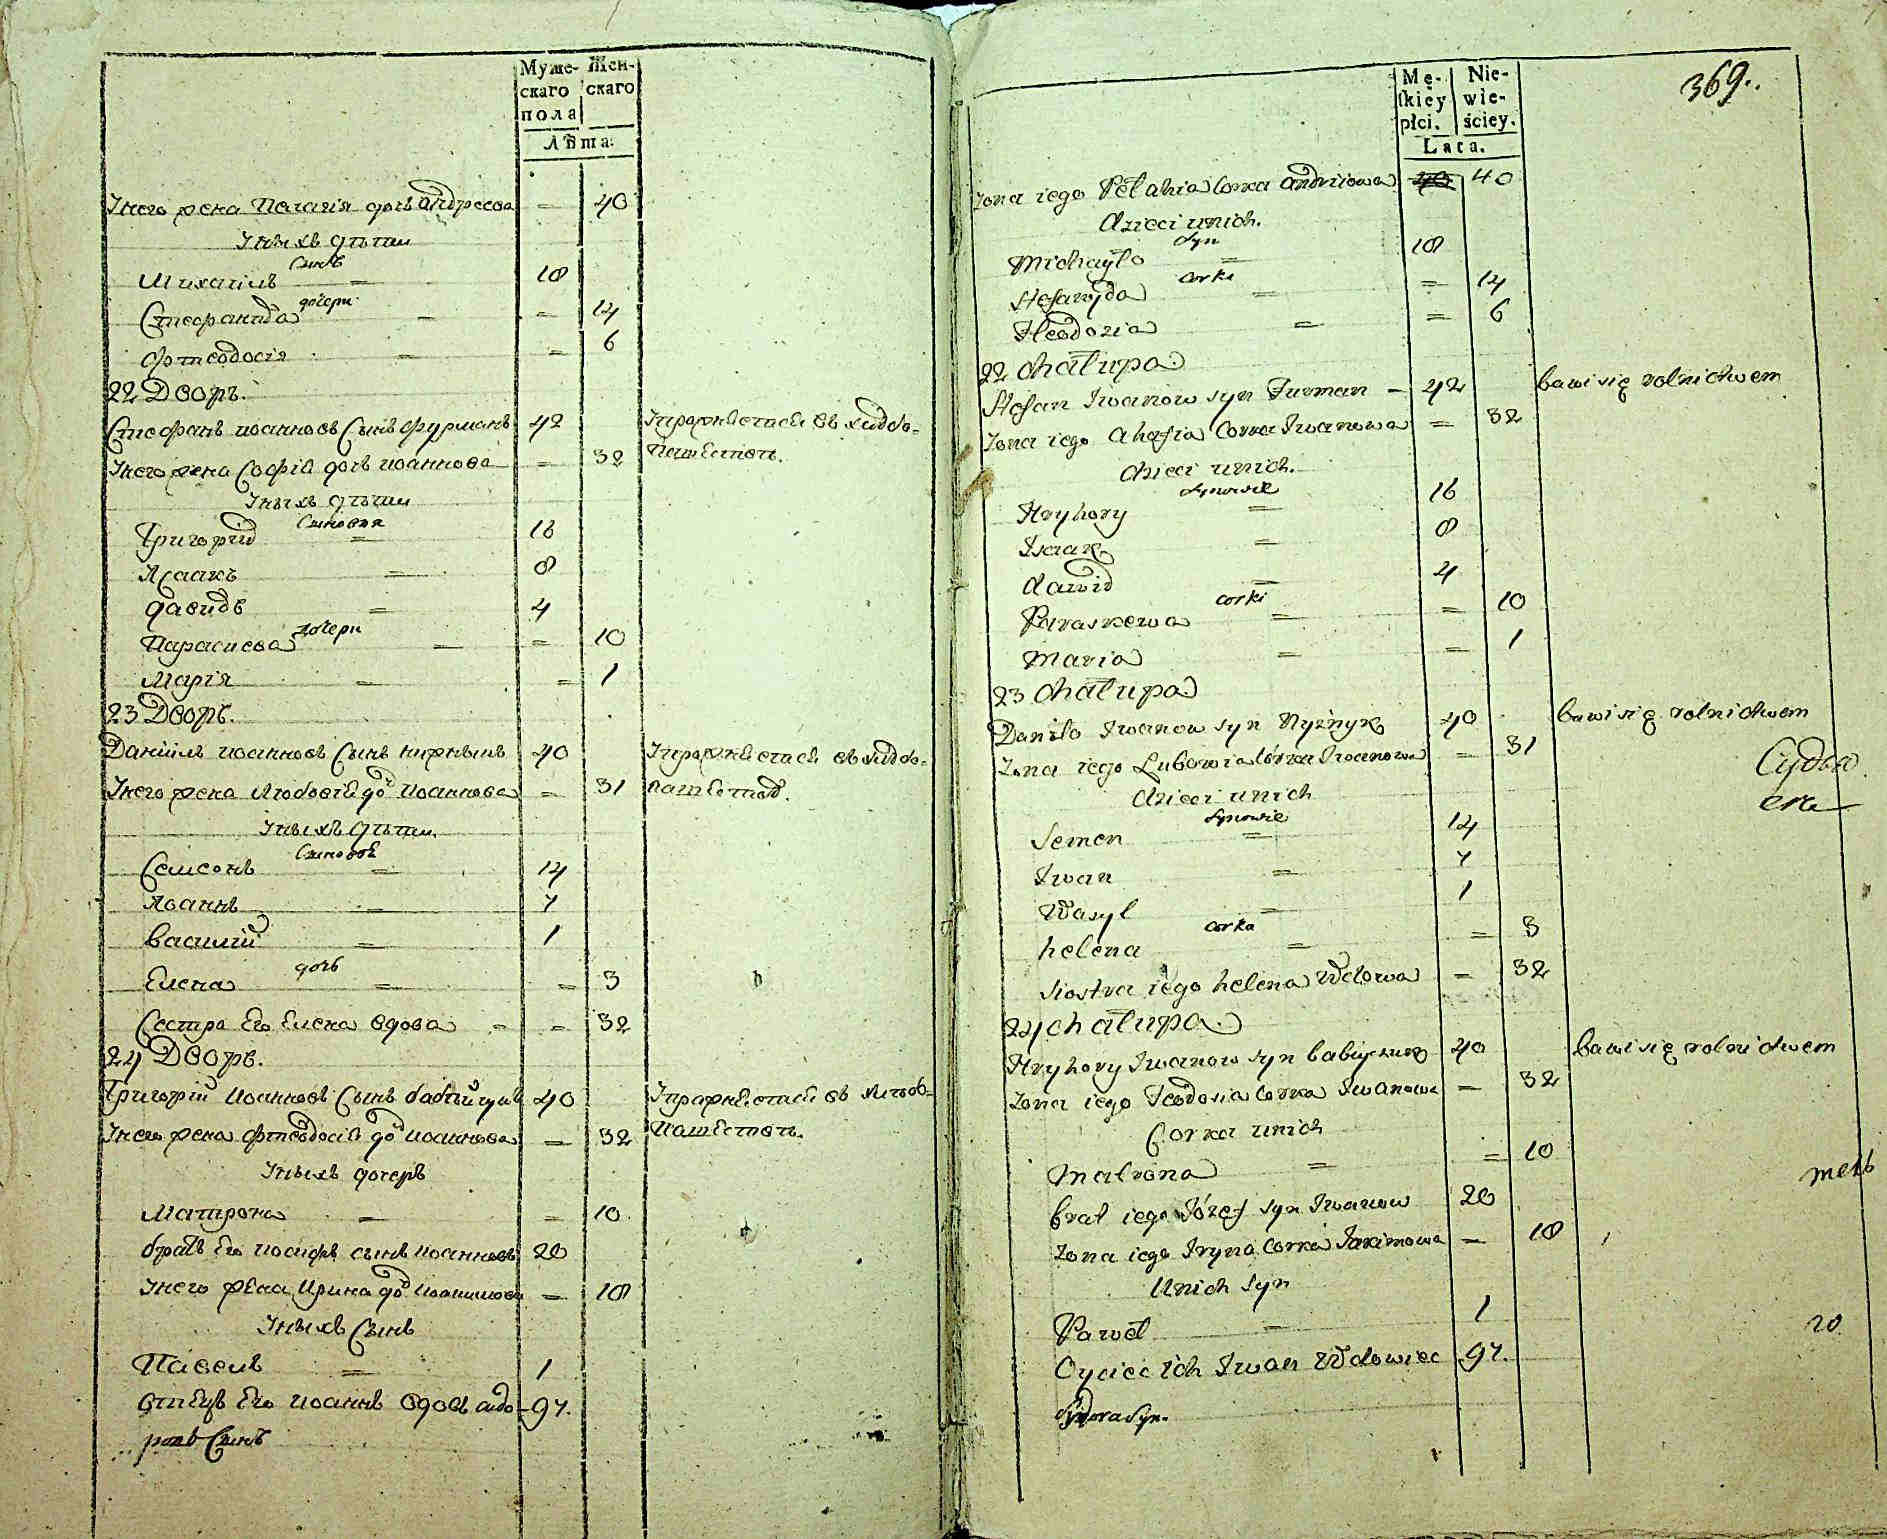 Муже- Жен-
скаго скаго
пола
Лѣта:
У него жена Пелагія дочь андреева = 40
У нихъ дѣти
Сынъ
Михаилъ = 18
дочери
Стефанида = = 14
Фтеодосія = = 6
22 Дворъ.
Стефанъ иоанновъ Сынъ фурманъ 42
У него жена Софія дочь иоаннова = 32
У нихъ дѣти
Сыновья
Григорій = 16
Исаакъ = 8
давидъ = 4
дочери
Параскева = = 10
Марія = = 1
23 Дворъ.
Даніилъ иоанновъ Сынъ 40
У него жена Любовія до иоаннова = 31
У нихъ дѣти
Сыновья
Семеонъ = 14
Иоаннъ = 7
василій = 1
дочь
Елена = = 3
Сестра Его Елена вдова = = 32
24 Дворъ.
Григорій иоанновъ Сынъ 40
У него жена фтеодосія до иоаннова = 32
У нихъ дочерь
Матрона = = 10
братъ Его иосифъ сынъ иоанновъ 20
У него жена Ирина до = 18
У нихъ Сынъ
Павелъ = 1
Отецъ Его иоаннъ вдовъ сидо- 97.
ровъ Сынъ
369.
Mę- Nie-
ſkiéy wie-
płci. ściey.
Lata.
Zona iego Pelahia Corka Andriiowa 40 40
dzieci unich.
Syn
Michayło = 18
Corki
Stefanyda = = 14
Fteodozia = = 6
22 chałupa
Stefan Iwanow syn Furman - 42 bawi się rolnictwem
Zona iego Ahafia Corka Iwanowa = 32
dzieci unich.
Synowie
Hryhory = 16
Isaak = 8
dawid = 4
corki
Paraskewa = = 10
Maria = = 1
23 chałupa
Daniło Iwanow syn Nyżnyk 40 bawi się rolnictwem
Zona iego Lubowia Córka Iwanowa = 31
dzieci unich
Synowie
Semen = 14
Iwan = 7
Wasyl = 1
corka
helena = = 3
siostra iego helena Wdowa = 32
24 chałupa.
Hryhory Iwanow syn 40 bawi się rolnictwem
Zona iego Teodosia Corka Iwanowa = 32
Corka unich
Matrona = = 10
brat iego Józef syn Iwanow 20
Zona iego Iryna Corka Jakimowa = 18
Unich syn
Paweł = 1
Oyciec ich Iwan Wdowiec 97.
Sydora Syn.